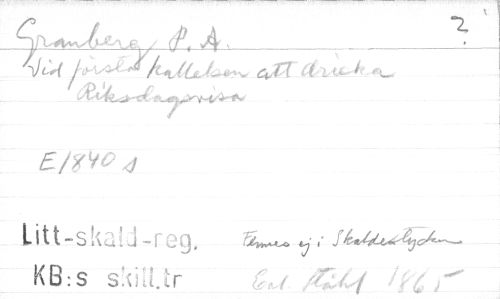 Granberg, P. A. ?
Vid första kallelsen att dricka
Riksdagsvisa
E1840s
Litt-skald-reg. Finnes ej i Skaldestycken
KB:s skill.tr Enl. Ståhl 1865